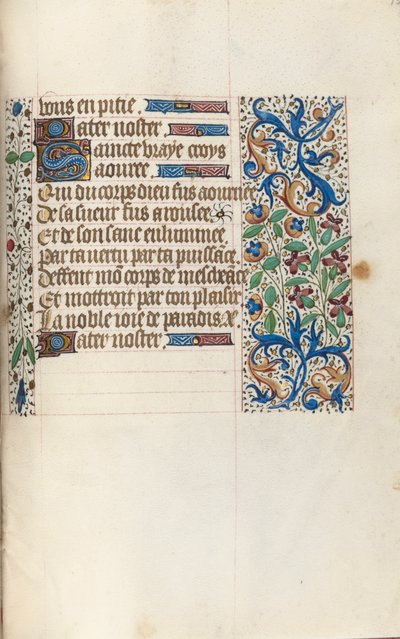 vous en pitie
Pater noster
Saincte vraye croys
aouree
Qui du corps dieu fus aournee
De sa sueur fus arousee
Et de son sanc enluminee
Par ta vertu par ta puissāce
Deffent mō corps de mescheāce
Et mottroit par ton plaisir
La noble ioie de paradis
Pater noster